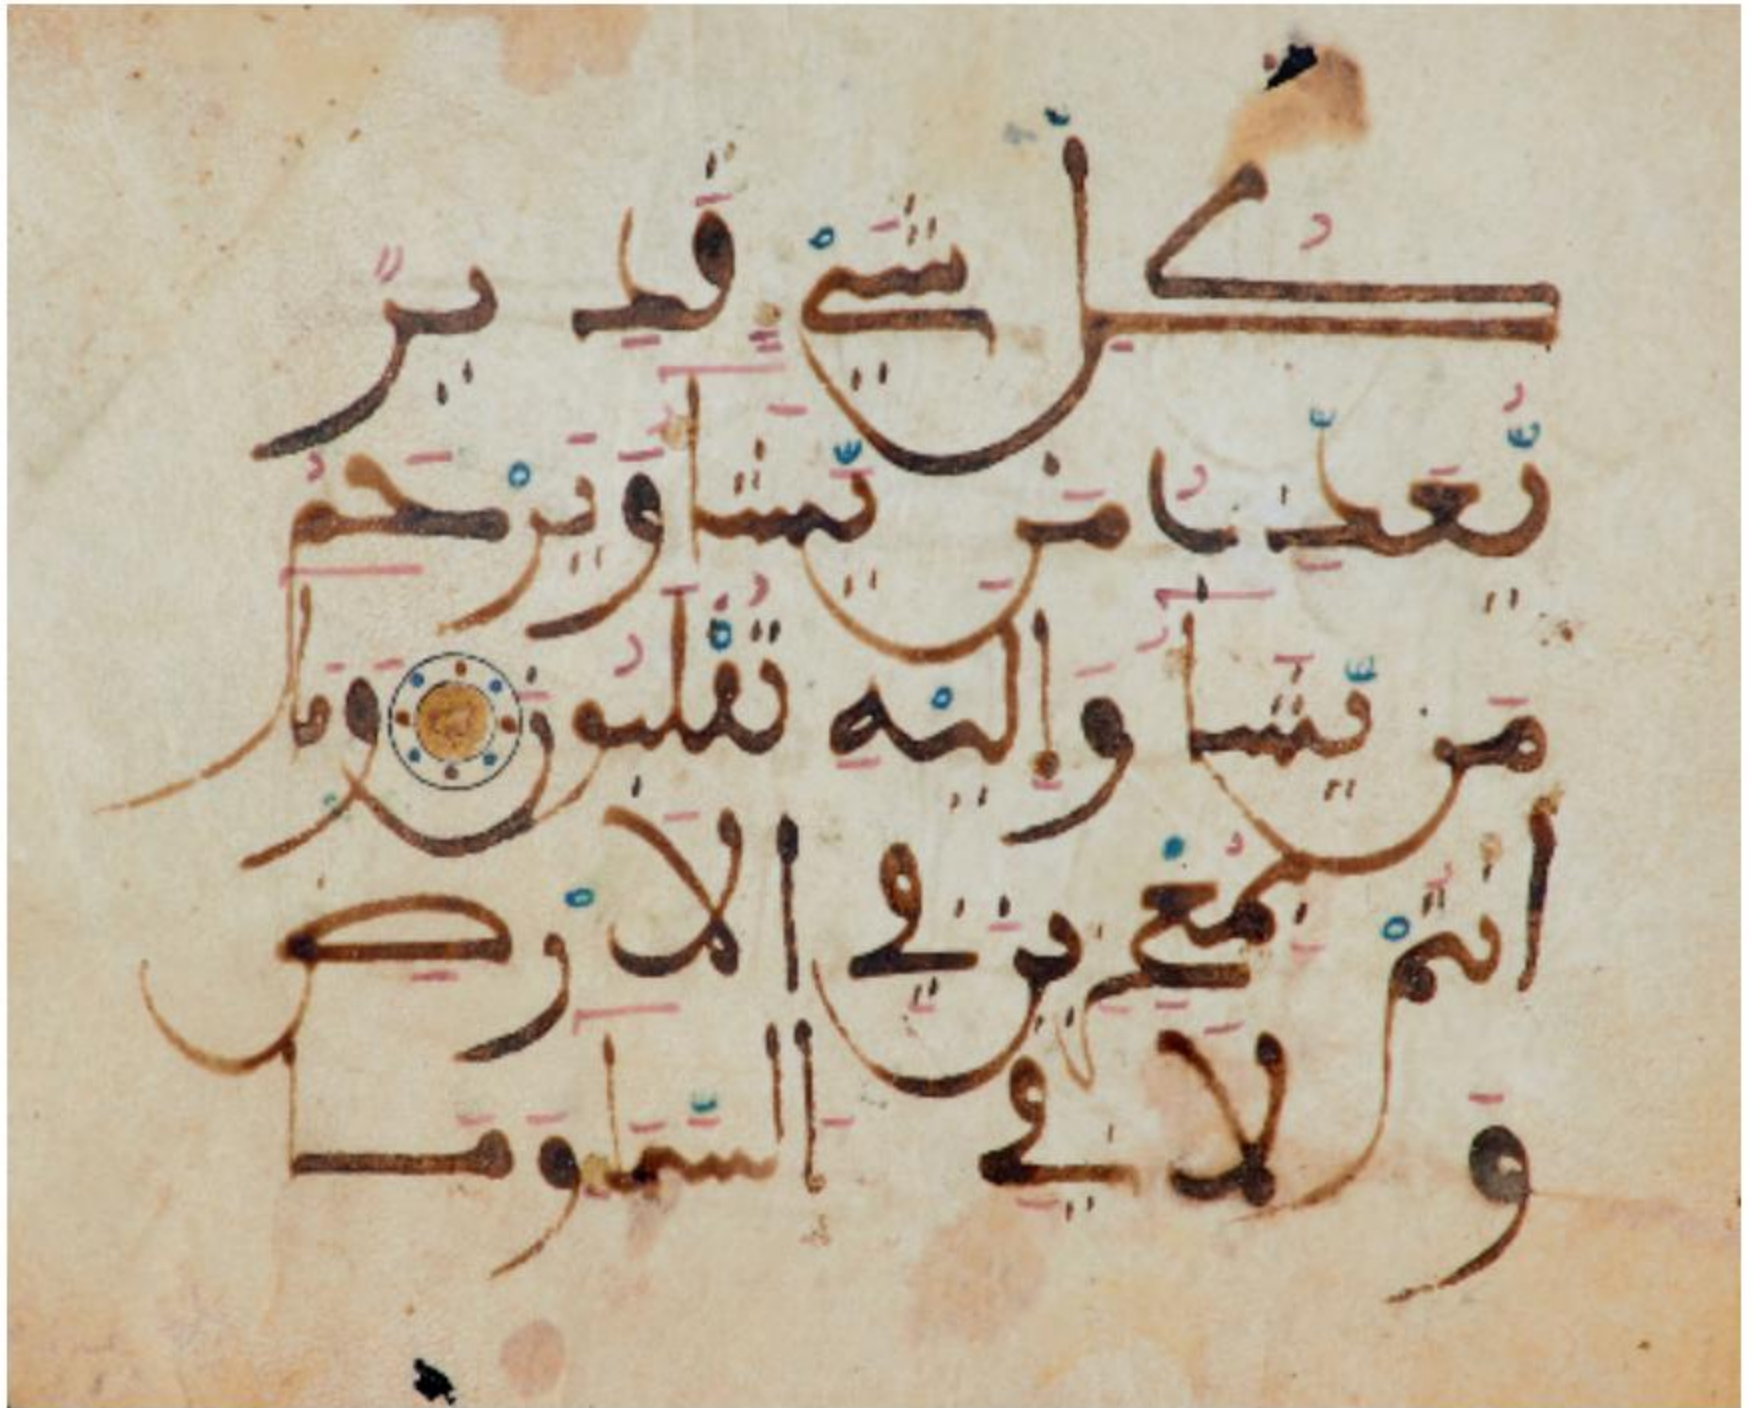 كُلِّ شَيْءٍ قَدِيرٌ
يُّعَذِّبُ مَنْ يَّشَاءُ وَيَرْحَمُ
مَنْ يَّشَاءُ وَإِلَيْهِ تُقْلَبُونَ وَمَا
أَنتُمْ بِمُعْجِزِينَ فِي الْأَرْضِ
وَلَا فِي السَّمَاءِ وَمَا